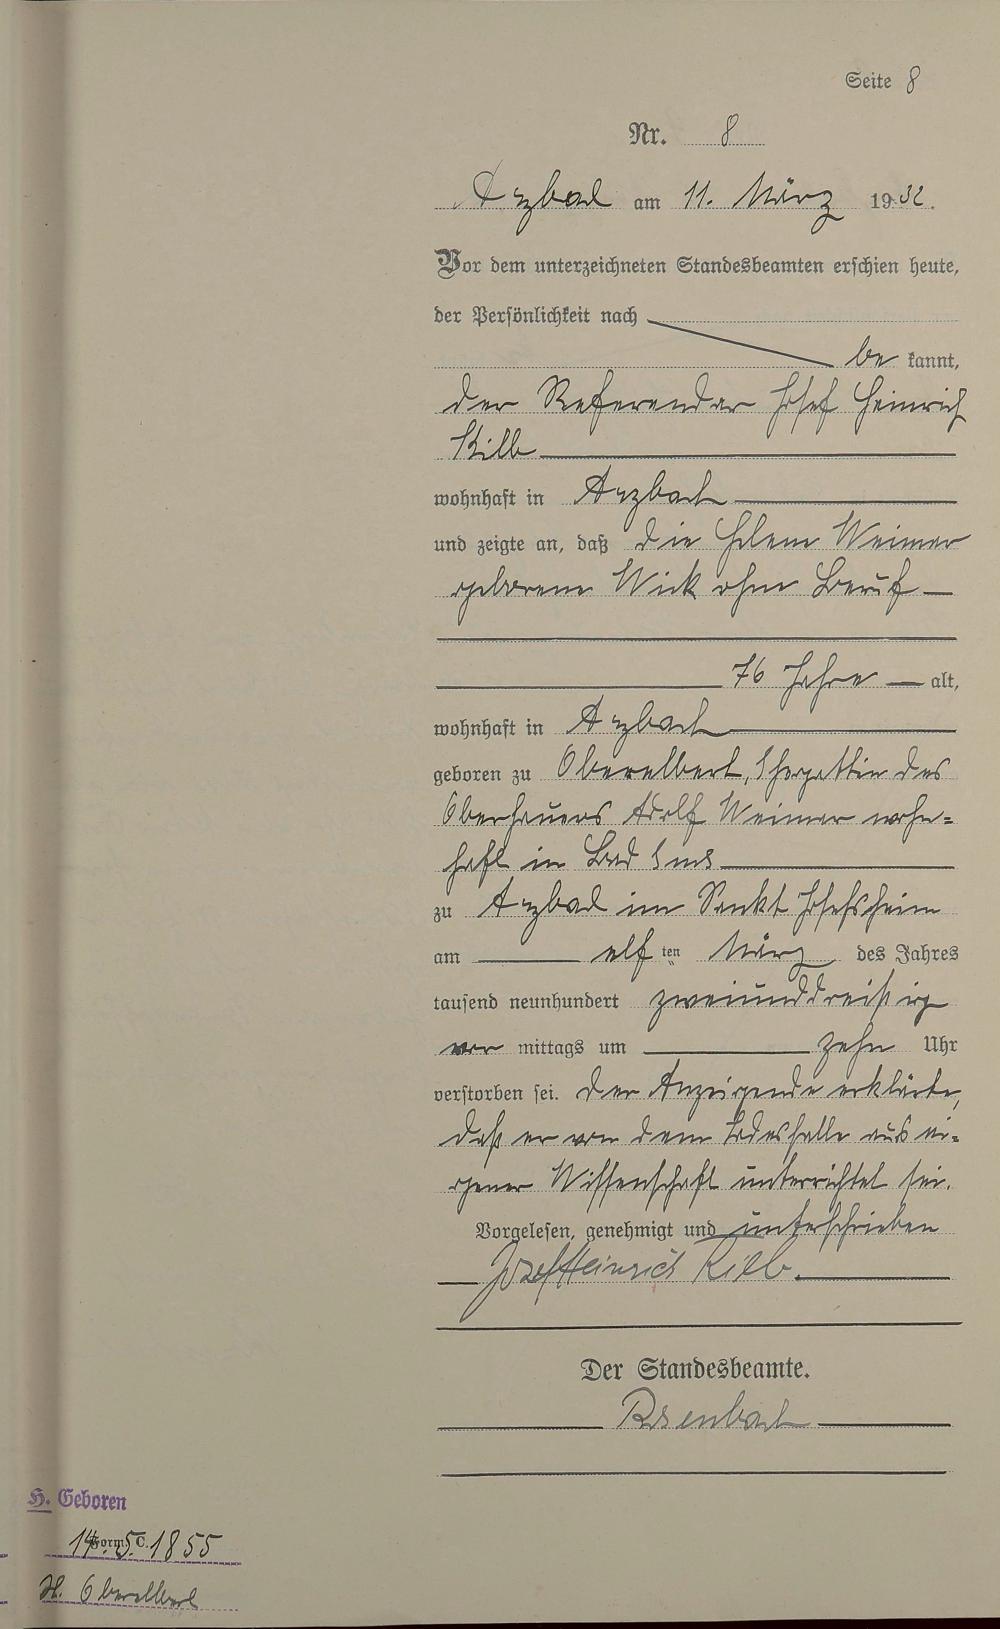 Seite 8
Nr. 8
Arzbach am 11. März 1932.
Vor dem unterzeichneten Standesbeamten erschien heute,
der Persönlichkeit nach
be kannt,
der Referendar Josef Heinrich
Kilb
wohnhaft in Arzbach
und zeigte an, daß die Helene Weimer
geborene Wick ohne Beruf
76 Jahre alt,
wohnhaft in Arzbach
geboren zu Oberelbert, Ehegattin des
Oberhauers Adolf Weimer wohn-
haft in Bad Ems
zu Arzbach im Sankt Josefsheim
am elf ten März des Jahres
tausend neunhundert zweiunddreißig
vor mittags um zehn Uhr
verstorben sei. Der Anzeigende erklärte,
daß er von dem Todesfalle aus ei-
gener Wissenschaft unterrichtet sei.
Vorgelesen, genehmigt und unterschrieben
Josef Heinrich Kilb.
Der Standesbeamte.
H. Geboren
14.5.1855
Form. C.
St. Oberelbert